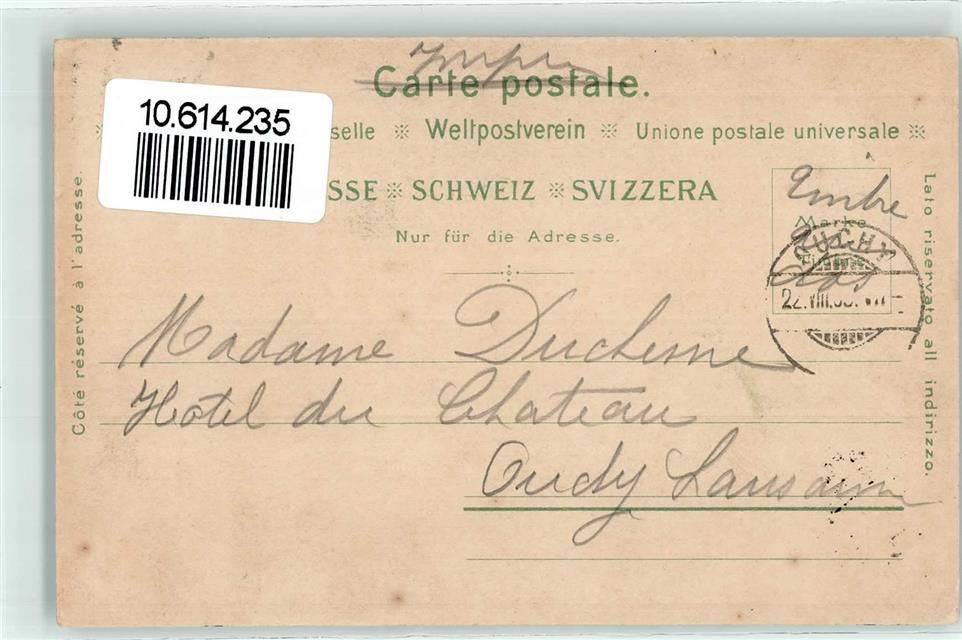 Carte postale.
10.614.235
selle ※ Weltpostverein ※ Unione postale universale ※
SSE ※ SCHWEIZ ※ SVIZZERA
Nur für die Adresse.
Côté réservé à l'adresse.
Lato riservato all indirizzo.
Marke
OUCHY
22.VIII.
Madame Duchesne
Hotel du Chateau
Ouchy Lausanne